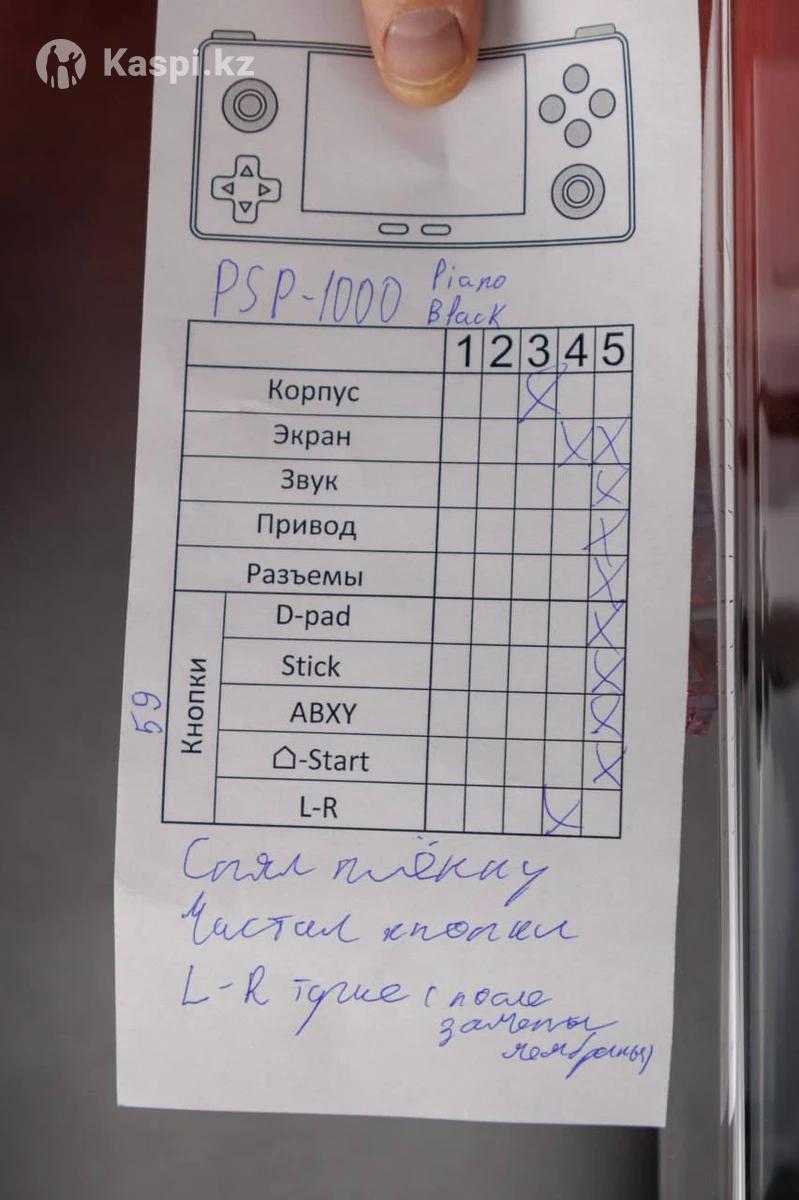 Kaspi.kz
PSP-1000 Piano
Black
1 2 3 4 5
Корпус
Экран
Звук
Привод
Разъемы
Кнопки
D-pad
Stick
ABXY
-Start
L-R
59
Снял плёнку
Чистил кнопки
L-R тугие (после
замены
мембраны)